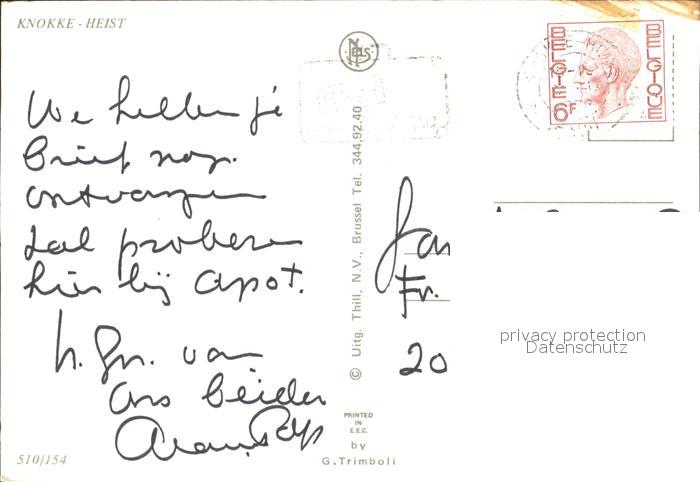 KNOKKE - HEIST
NELS
BELGIE
BELGIQUE
6F
We hebben je
brief nog.
ontvangen
Zal proberen
hier bij apot.
h. Gr. van
Ons beider
© Uitg. Thill, N.V., Brussel Tel. 344.92.40
PRINTED
IN
E.E.C.
by
G. Trimboli
510/154
Fr.
20
privacy protection
Datenschutz